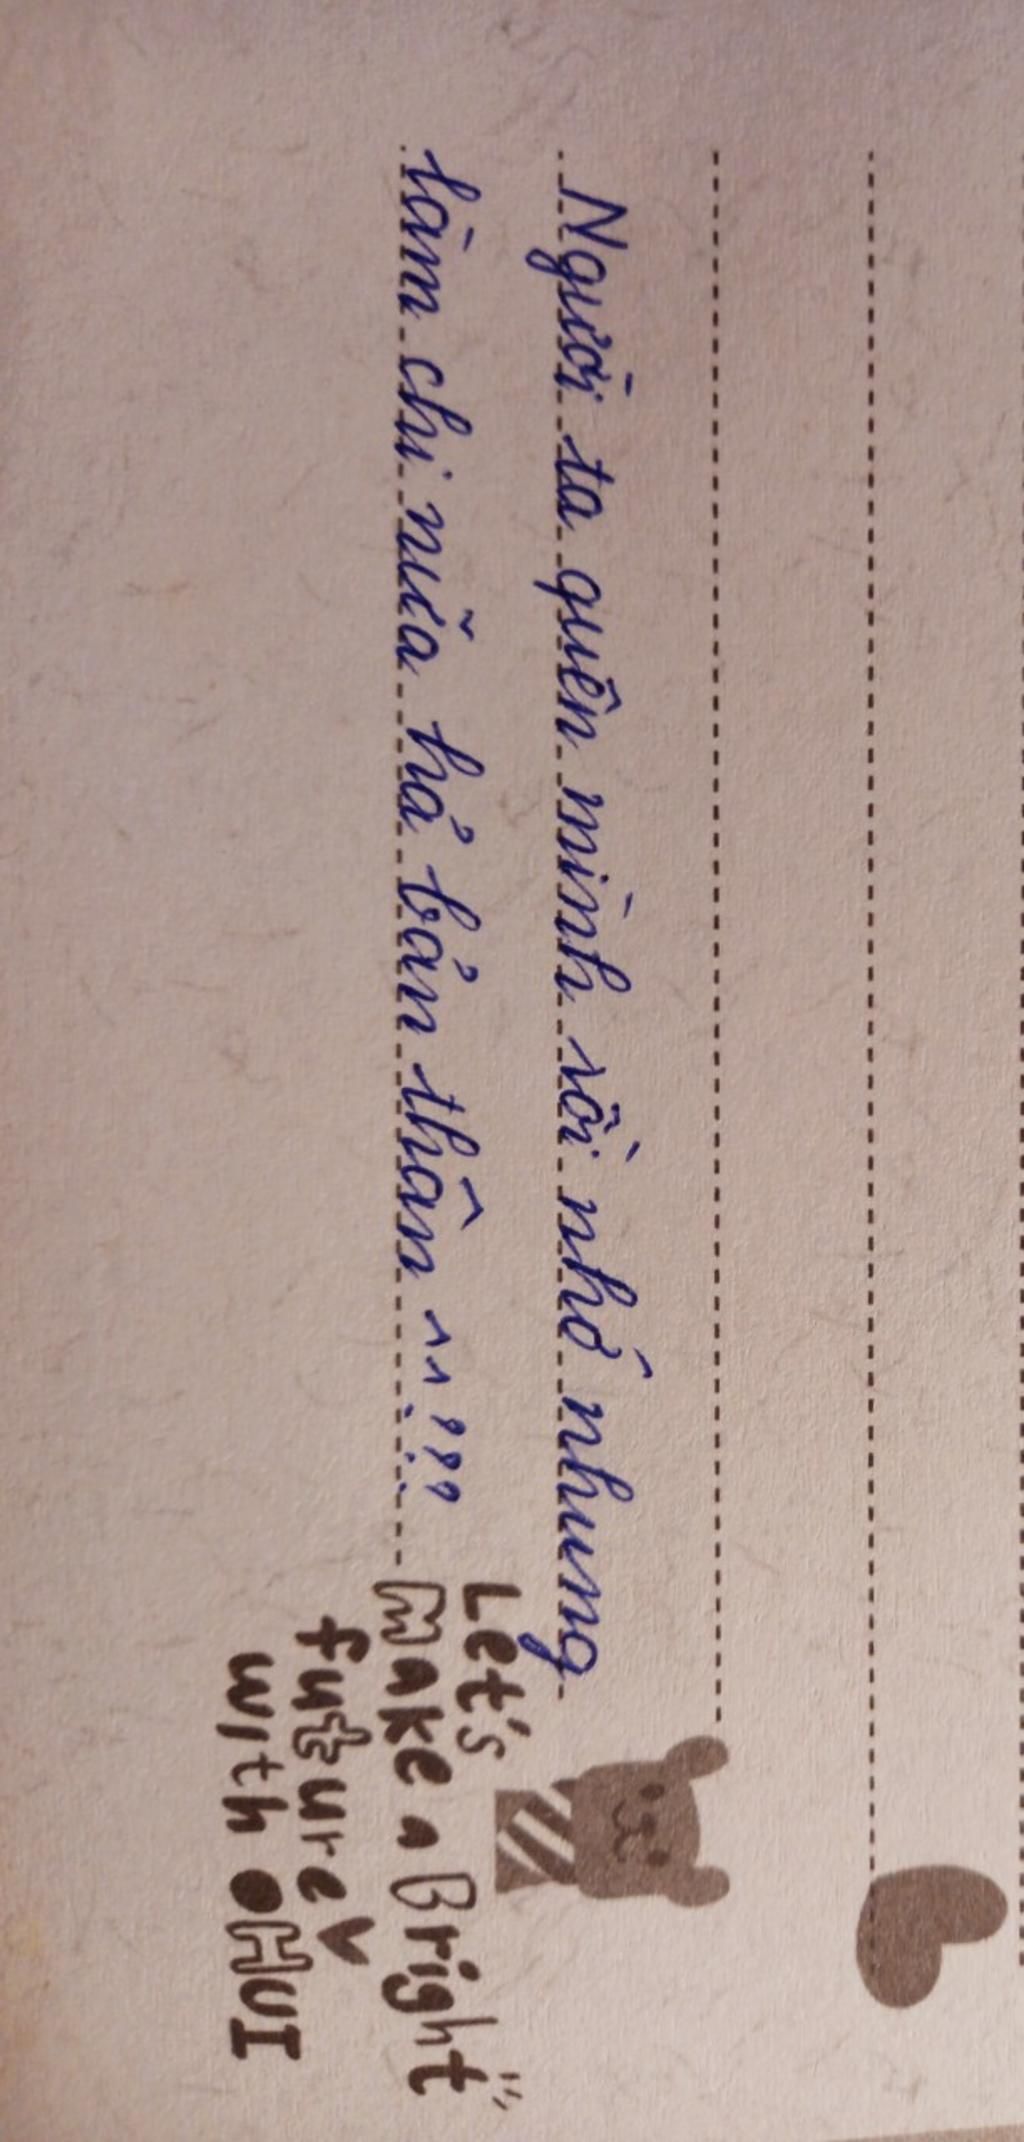 Người ta quên mình rồi nhớ nhung
làm chi nữa hả bản thân ^^???
Let's
Make a Bright
future
with OHUI